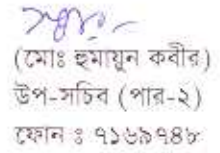 (মোঃ হুমায়ুন কবীর)
উপ-সচিব (পার-২)
ফোন ঃ ৭১৬৯৭৪৮